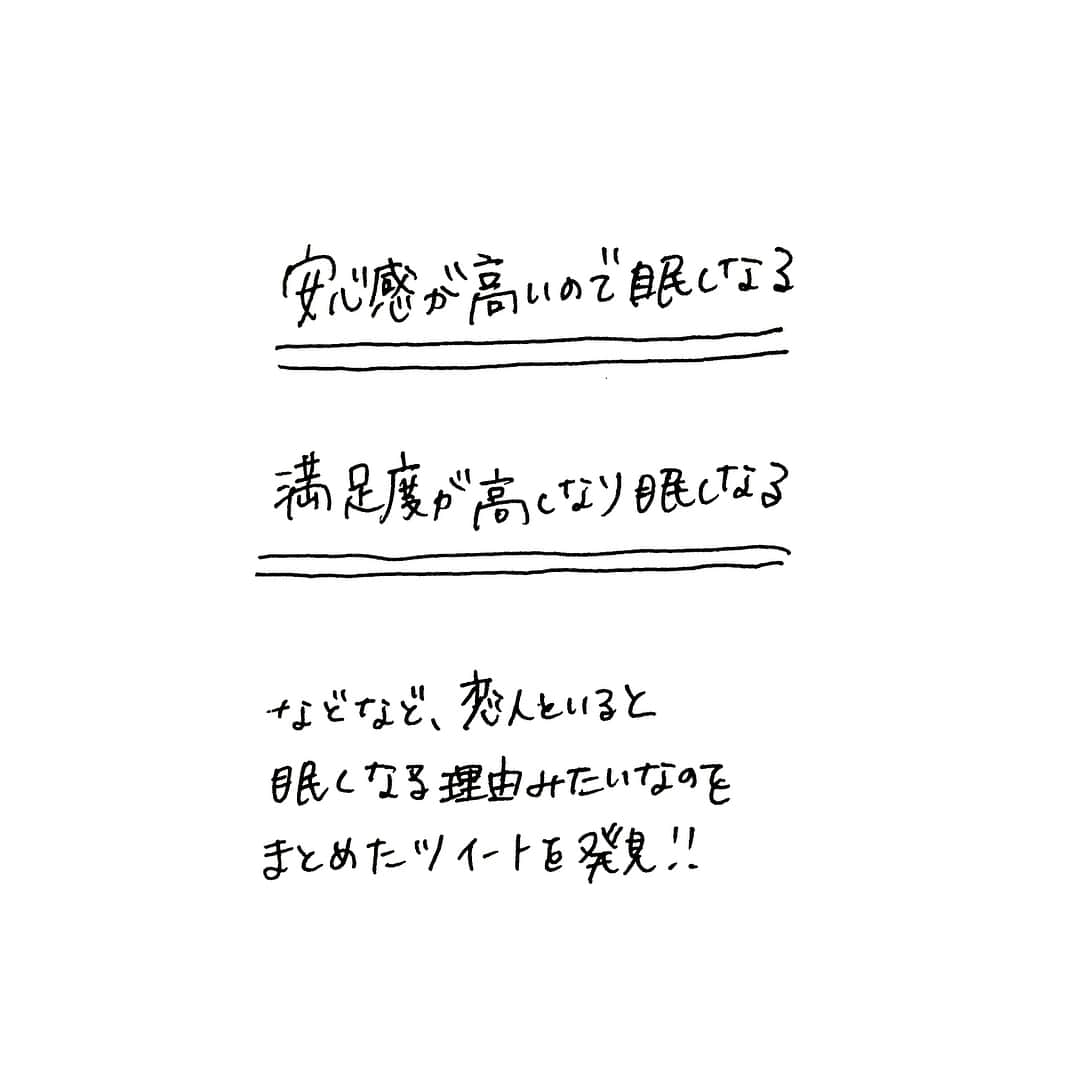 安心感が高いので眠くなる
満足度が高くなり眠くなる
などなど、恋人といると
眠くなる理由みたいなのを
まとめたツイートを発見!!